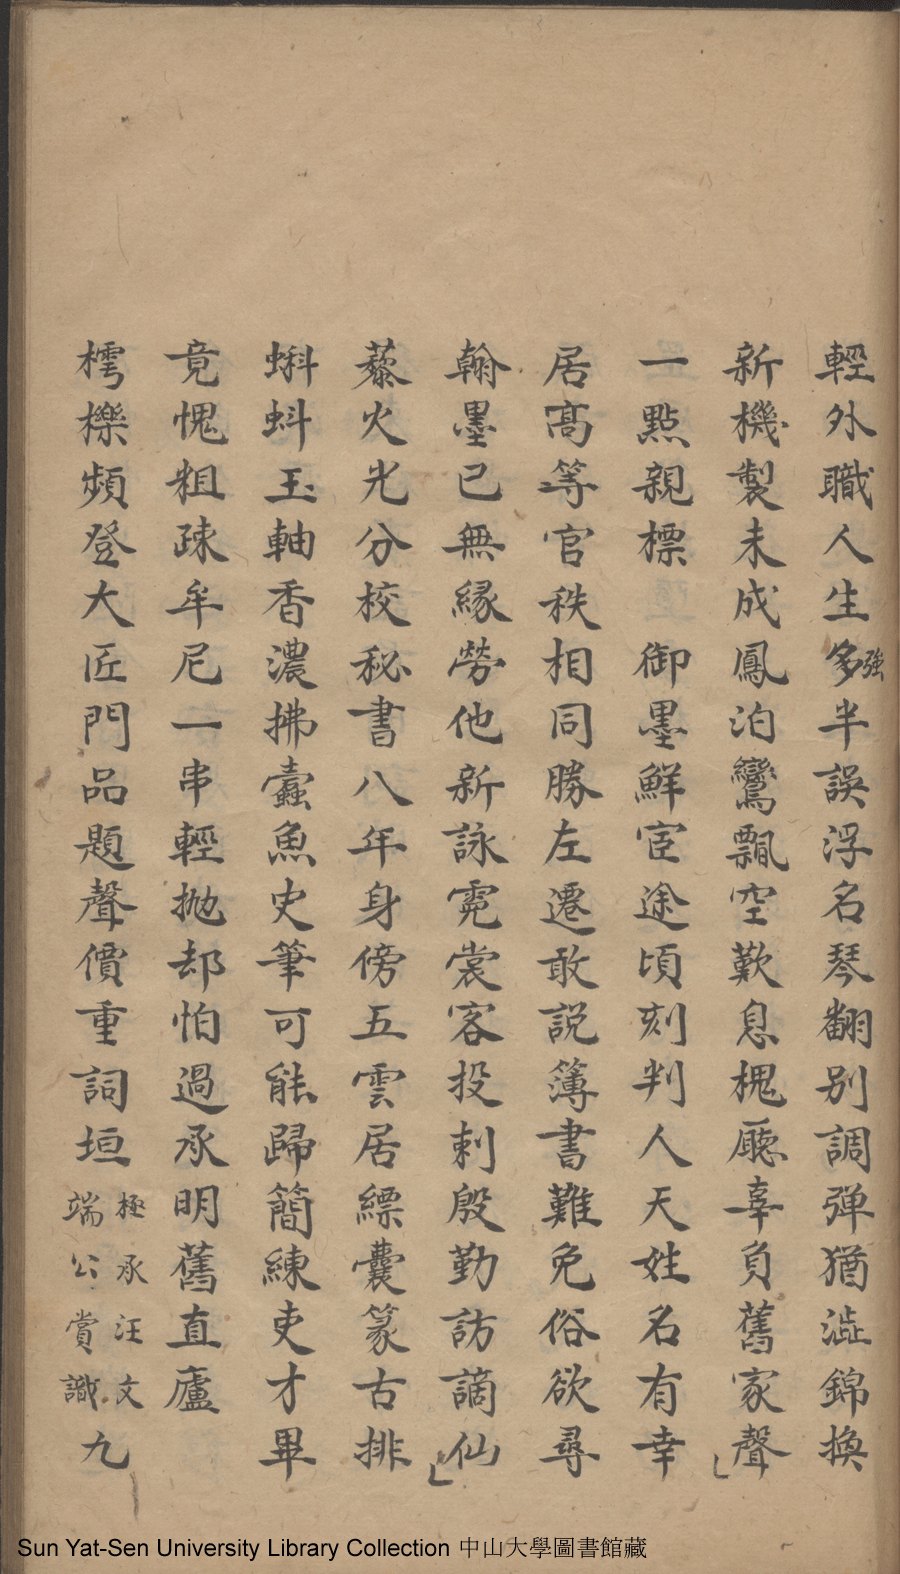 輕外職人生多強半誤浮名琴翻別調彈猶澁錦換
新機製未成鳳泊鸞飄空歎息槐廳辜負舊家聲
一點親標　御墨鮮宦途頃刻判人天姓名有幸
居高等官秩相同勝左遷敢説簿書難免俗欲尋
翰墨已無緣勞他新詠霓裳客投刺殷勤訪謫仙
藜火光分校秘書八年身傍五雲居縹囊篆古排
蝌蚪玉軸香濃拂蠹魚史筆可能歸簡練吏才畢
竟愧粗疎牟尼一串輕拋却怕過承明舊直廬
樗櫟頻登大匠門品題聲價重詞垣極承汪文端公賞識九
Sun Yat-Sen University Library Collection 中山大學圖書館藏